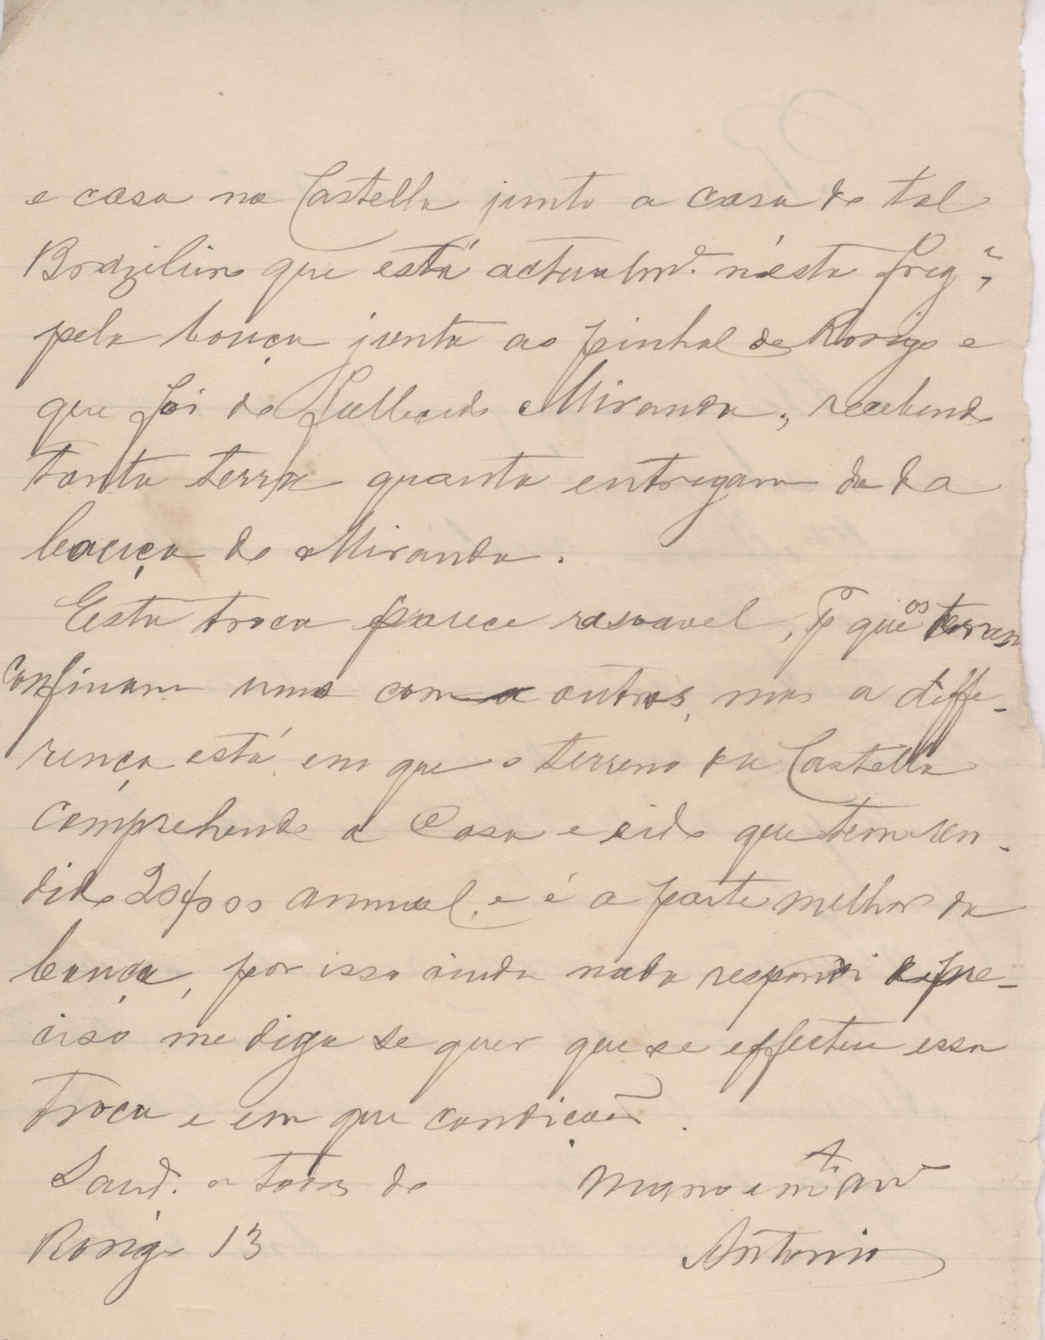 e casa na Castella junto a casa do tal
Brazileiro que está actualm.e n'esta freg.a,
pela bouça junta ao pinhal de Roriz e
que foi do fallecido Miranda, recebendo
tanta terra quanta entregam da da
bouça do Miranda.
Esta troca parece rasoavel, p que os terrenos
confinam uns com a outros, mas a diffe-
rença está em que o terreno da Castella
comprehende a Casa e eido que tem ren-
dido 20$000 annual, e é a parte melhor da
bouça, por isso ainda nada respondi e é pre-
ciso me diga se quer que se effectue essa
troca e em que condicões.
Saud. a todos do
Mano e m.to am.o
Roriz 13
Antonio